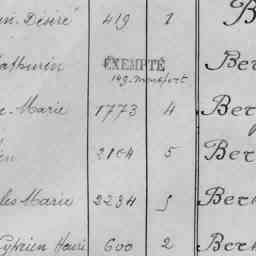 Désiré 419 1 B
EXEMPTÉ Ber
149. Montfort
Marie 1773 4 Ber
2164 5 Ber
les Marie 2234 5 Ber
Cyprien Henri 600 2 Ber